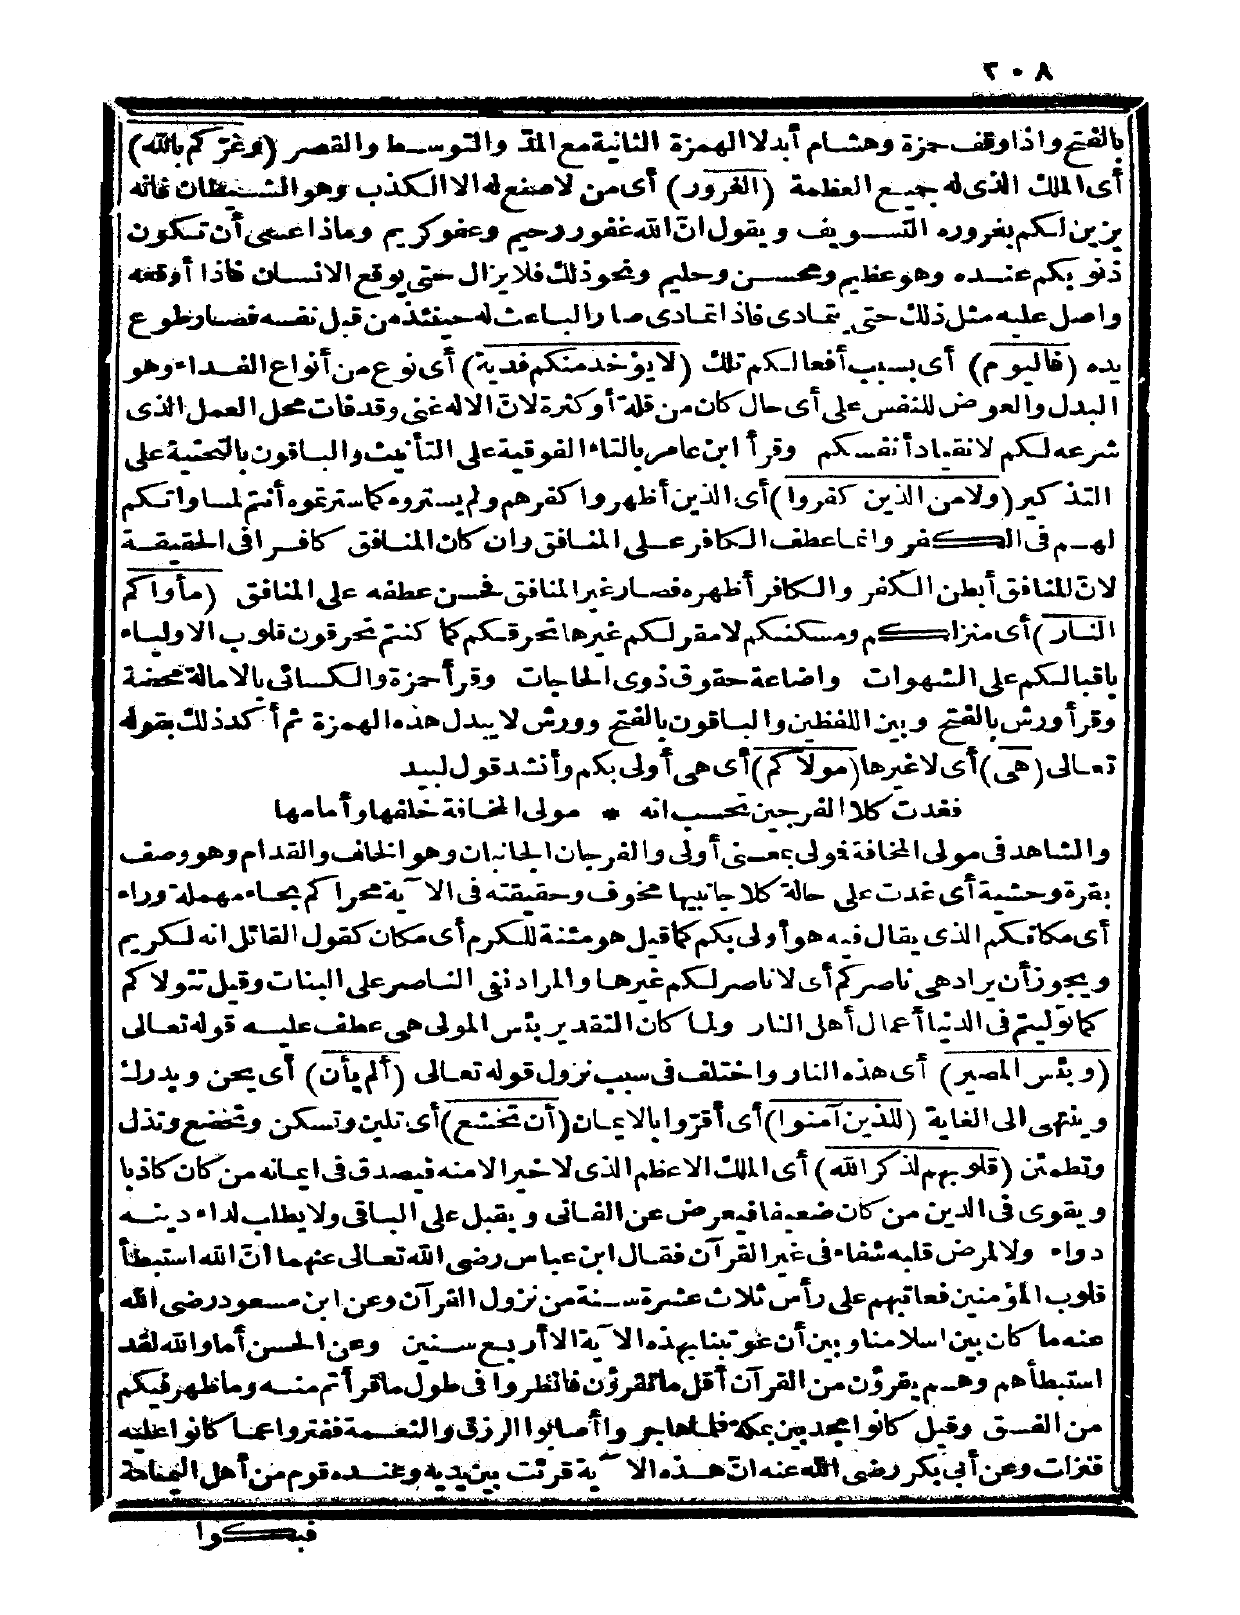 ٢٠٨
بالفتح واذا وقف حمزة وهشام أبدلا الهمزة الثانية مع المدّ والتوسط والقصر (وغرّكم بالله)
أى الملك الذى له جميع العظمة (الغرور) أى من لا صنع له الا الكذب وهو الشيطان فانه
يزين لكم بغروره التسويف ويقول انّ الله غفور رحيم وعفو كريم وماذا عسى أن تكون
ذنوبكم عنده وهو عظيم ومحسن وحليم ونحو ذلك فلا يزال حتى يوقع الانسان فاذا أوقعه
واصل عليه مثل ذلك حتى يتمادى فاذا تمادى صار الباعث له حينئذ من قبل نفسه فصار طوع
يده (فاليوم) أى بسبب أفعالكم تلك (لا يؤخذ منكم فدية) أى نوع من أنواع الفداء وهو
البدل والعوض للنفس على أى حال كان من قلة أو كثرة لانّ الاله غنى وقد فات محل العمل الذى
شرعه لكم لانقياد أنفسكم وقرأ ابن عامر بالتاء الفوقية على التأنيث والباقون بالتحتية على
التذكير (ولا من الذين كفروا) أى الذين أظهروا كفرهم ولم يستروه كما سترتموه أنتم لمساواتكم
لهم فى الكفر وانما عطف الكافر على المنافق وان كان المنافق كافرا فى الحقيقة
لانّ المنافق أبطن الكفر والكافر أظهره فصار غير المنافق فحسن عطفه على المنافق (مأواكم
النار) أى منزلكم ومسكنكم لا مقر لكم غيرها تحرقكم كما كنتم تحرقون قلوب الاولياء
باقبالكم على الشهوات واضاعة حقوق ذوى الحاجات وقرأ حمزة والكسائى بالامالة محضة
وقرأ ورش بالفتح وبين اللفظين والباقون بالفتح وورش لا يبدل هذه الهمزة ثم أكد ذلك بقوله
تعالى (هى) أى لا غيرها (مولاكم) أى هى أولى بكم وأنشد قول لبيد
فغدت كلا الفرجين تحسب انه * مولى المخافة خلفها وأمامها
والشاهد فى مولى المخافة فولى بمعنى أولى والفرجان الجانبان وهو الخلف والقدام وهو وصف
بقرة وحشية أى غدت على حالة كلا جانبيها مخوف وحقيقته فى الآية محراكم بحاء مهملة وراء
أى مكانكم الذى يقال فيه هو أولى بكم كما قيل هو مئنة للكرم أى مكان كقول القائل انه لكريم
ويجوز أن يراد هى ناصركم أى لا ناصر لكم غيرها والمراد نفى الناصر على البتات وقيل تتولاكم
كما توليتم فى الدنيا أعمال أهل النار ولما كان التقدير بئس المولى هى عطف عليه قوله تعالى
(وبئس المصير) أى هذه النار واختلف فى سبب نزول قوله تعالى (ألم يأن) أى يحن ويدرك
وينتهى الى الغاية (للذين آمنوا) أى أقرّوا بالايمان (أن تخشع) أى تلين وتسكن وتخضع وتذل
وتطمئن (قلوبهم لذكر الله) أى الملك الاعظم الذى لا خير الا منه فيصدق فى ايمانه من كان كاذبا
ويقوى فى الدين من كان ضعيفا فيعرض عن الفانى ويقبل على الباقى ولا يطلب لداء دينه
دواء ولا لمرض قلبه شفاء فى غير القرآن فقال ابن عباس رضى الله تعالى عنهما انّ الله استبطأ
قلوب المؤمنين فعاتبهم على رأس ثلاث عشرة سنة من نزول القرآن وعن ابن مسعود رضى الله
عنه ما كان بين اسلامنا وبين أن عوتبنا بهذه الآية الا أربع سنين وعن الحسن أما والله لقد
استبطأهم وهم يقرؤن من القرآن أقل ما تقرؤن فانظروا فى طول ما قرأتم منه وما ظهر فيكم
من الفسق وقيل كانوا مجدبين بمكة فلما هاجروا أصابوا الرزق والنعمة ففتروا عما كانوا عليه
فنزلت وعن أبى بكر رضى الله عنه انّ هذه الآية قرئت بين يديه وعنده قوم من أهل اليمامة
فبكوا